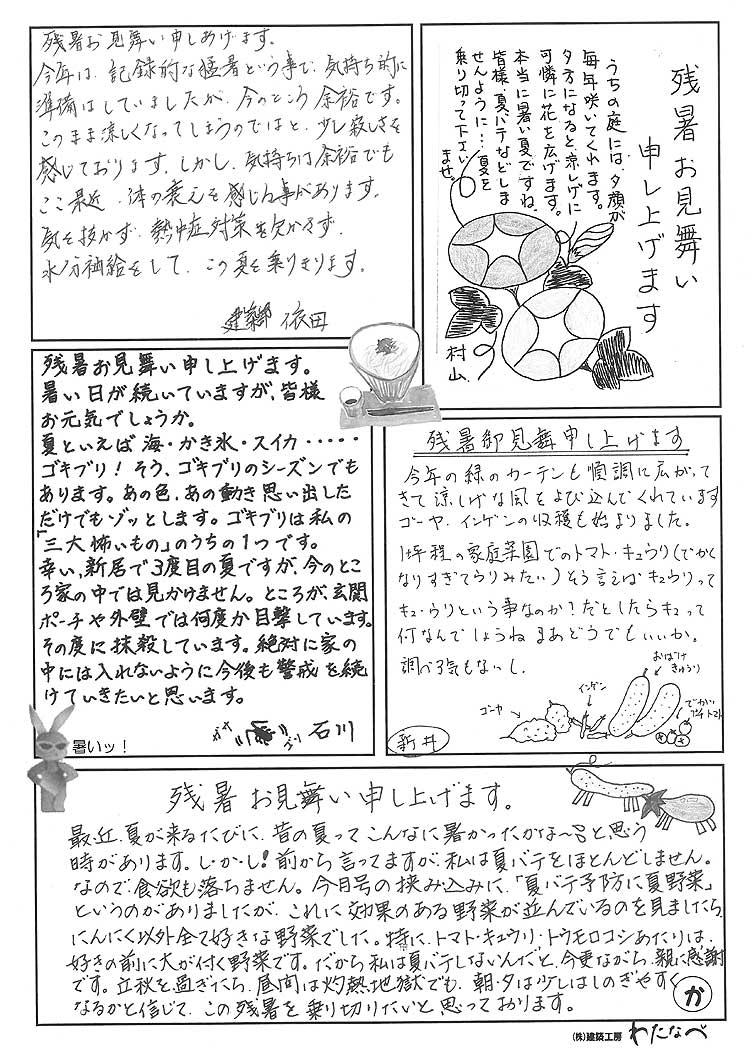 残暑お見舞い申しあげます。
今年は、記録的な猛暑という事で、気持ち的に
準備はしていましたが、今のところ余裕です。
このまま涼しくなってしまうのではと、少し寂しさを
感じております。しかし、気持ちは余裕でも
ここ最近、体の衰えを感じる事があります。
気を抜かず、熱中症対策を欠かさず、
水分補給をして、この夏を乗りきります。
建築部 依田
残暑お見舞い
申し上げます
うちの庭には、夕顔が
毎年咲いてくれます。
夕方になると、涼しげに
可憐に花を広げます。
本当に暑い夏ですね、
皆様、夏バテなどしま
せんように…夏を
乗り切って下さい
ませ。
村山
残暑お見舞い申し上げます。
暑い日が続いていますが、皆様
お元気でしょうか。
夏といえば海・かき氷・スイカ・・・・・
ゴキブリ！そう、ゴキブリのシーズンでも
あります。あの色、あの動き思い出した
だけでもゾッとします。ゴキブリは私の
「三大怖いもの」のうちの1つです。
幸い、新居で3度目の夏ですが、今のとこ
ろ家の中では見かけません。ところが、玄関
ポーチや外壁では何度か目撃しています。
その度に抹殺しています。絶対に家の
中には入れないように今後も警戒を続
けていきたいと思います。
ガサ ゴソ 石川
暑いッ！
残暑御見舞申し上げます
今年の緑のカーテンも順調に広がって
きて涼しげな風をよび込んでくれています
ゴーヤ、インゲンの収穫も始まりました。
1坪程の家庭菜園でのトマト・キュウリ(でかく
なりすぎてウリみたい)そう言えばキュウリって
キュ・ウリという事なのか？だとしたらキュって
何なんでしょうね まあどうでもいいか。
調べる気もないし。
おばけ
きゅうり
インゲン
ゴーヤ
でかい
プチトマト
新井
残暑お見舞い申し上げます。
最近、夏が来るたびに、昔の夏ってこんなに暑かったかな〜？と思う
時があります。し・か・し！前から言ってますが、私は夏バテをほとんどしません。
なので、食欲も落ちません。今月号の挟み込みに、「夏バテ予防に夏野菜」
というのがありましたが、これに効果のある野菜が並んでいるのを見ましたら、
にんにく以外全て好きな野菜でした。特に、トマト・キュウリ・トウモロコシあたりは、
好きの前に大が付く野菜です。だから私は夏バテしないんだと、今更ながら、親に感謝
です。立秋を過ぎたら、昼間は灼熱地獄でも、朝・夕は少しはしのぎやすく
なるかと信じて、この残暑を乗り切りたいと思っております。
か
(株)建築工房 わたなべ